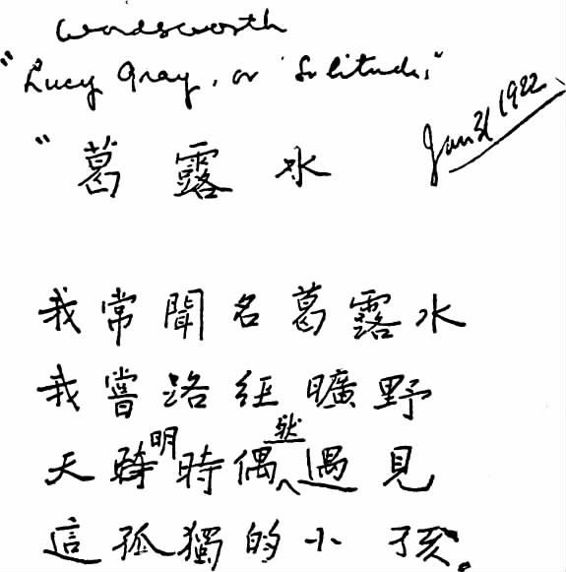 Wordsworth
"Lucy Gray, or Solitude"
Jan 31 1922
"葛露水
我常聞名葛露水
我嘗洛經曠野
天明時偶然遇見
這孤獨的小孩。